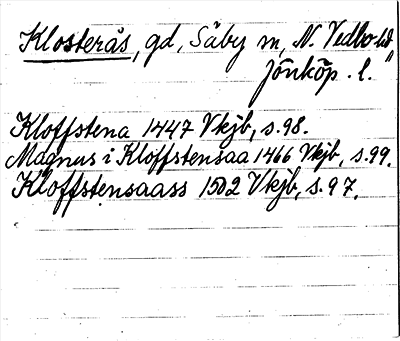 Klosterås, gd, Säby sn, N. Vedbo hd
Jönköp. l.
Kloffstena 1447 Vkjb, s.98.
Magnus i Kloffstensaa 1466 Vkjb, s.99.
Kloffstensaass 1502 Vkjb, s.97.